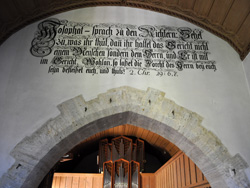 Josophat sprach zu den Richtern: Sehet
zu, was ihr thut, dan ihr haltet das Gericht nicht
einem Menschen sondern dem Herrn, und Er ist mit
im Gericht. Wohlan, so lasset die Forcht des Herrn bey euch
seyn und thuts. 2. Chr. 19. 6. 7.